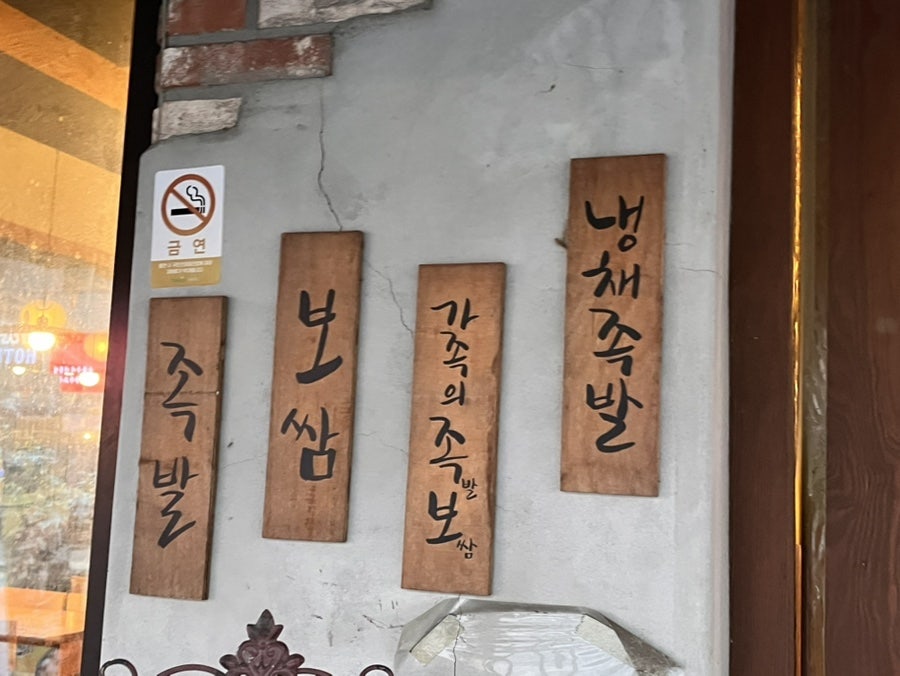 금연
족발
보쌈
가족의 족발 보쌈
냉채족발